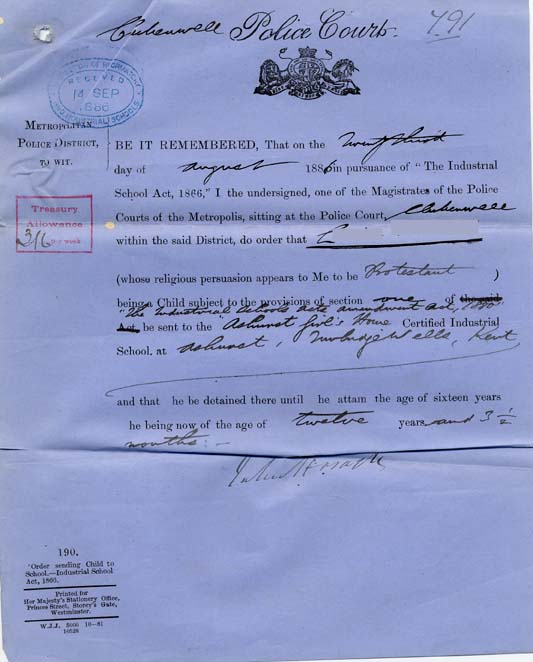 Clerkenwell Police Courts.
791
RECEIVED
14 SEP
1886
INDUSTRIAL SCHOOLS
METROPOLITAN
POLICE DISTRICT,
TO WIT.
Treasury
Allowance
3/6 per week
BE IT REMEMBERED, That on the Twenty third
day of August 1886 in pursuance of "The Industrial
School Act, 1866," I the undersigned, one of the Magistrates of the Police
Courts of the Metropolis, sitting at the Police Court, Clerkenwell
within the said District, do order that E
(whose religious persuasion appears to Me to be Protestant )
being a Child subject to the provisions of section one of the said
"The Industrial Schools Acts amendment Act, 1880"
Act, be sent to the Ashurst Girl's Home Certified Industrial
School. at Ashurst, Tunbridge Wells, Kent
and that he be detained there until he attain the age of sixteen years
he being now of the age of twelve years and 3 ½
months:-
190.
'Order sending Child to
School.—Industrial School
Act, 1866.
Printed for
Her Majesty's Stationery Office,
Princes Street, Storey's Gate,
Westminster.
W.J.J. 5000 10—81